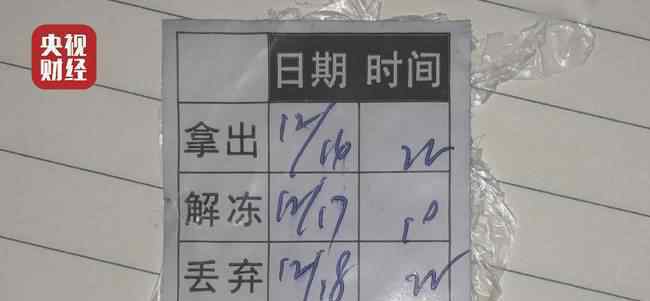 央视
财经
日期 时间
拿出 12/16 22
解冻 12/17 10
丢弃 12/18 22